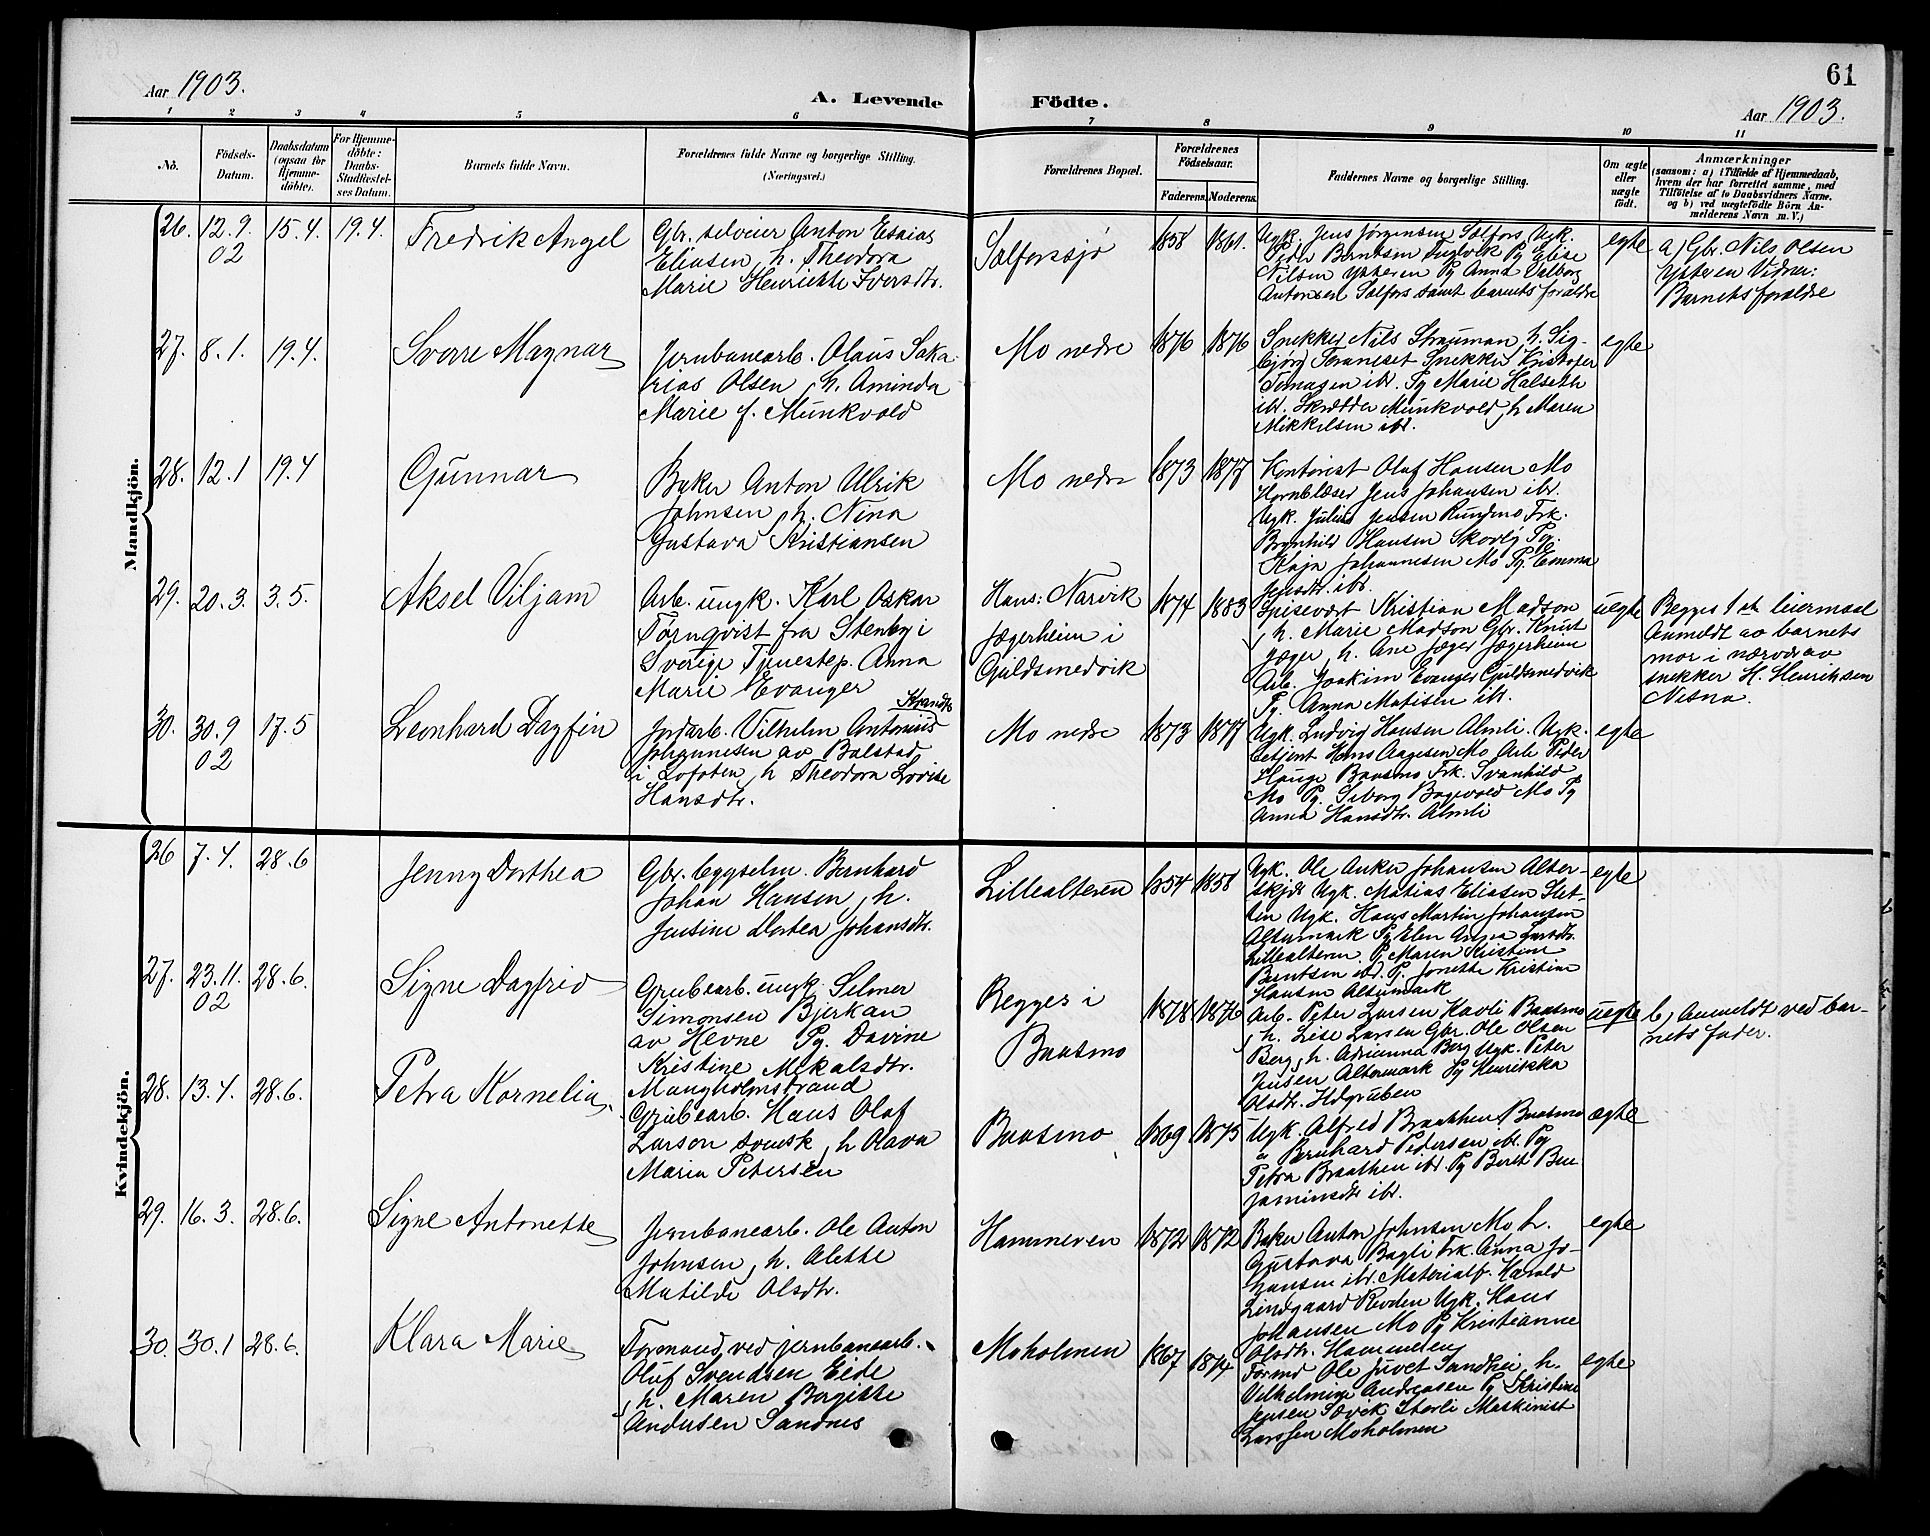 61
Aar 1903.
A. Levende Födte.
Aar 1903.
1 2 3 4 5 6 7 8 9 10 11
No.
Födsels-
Datum.
Daabsdatum
(ogsaa for
Hjemme-
döbte).
For Hjemme-
döbte:
Daabs-
Stadfæstel-
ses Datum.
Barnets fulde Navn.
Forældrenes fulde Navne og borgerlige Stilling.
(Næringsvei.)
Forældrenes Bopæl.
Forældrenes
Födselsaar.
Faderens. Moderens.
Faddernes Navne og borgerlige Stilling.
Om ægte
eller
uægte
födt.
Anmærkninger
(saasom: a) i Tilfælde af Hjemmedaab,
hvem der har forrettet samme, med
Tilföielse af to Daabsvidners Navne.
og b) ved uægtefödte Börn An-
melderens Navn m. V.)
Mandkjön.
26. 12.9.
02
15.4. 19.4.
Fredrik Angel
Gbr. selveier Anton Esaias
Eliasen, h. Theodora
Marie Henrikke Iversdtr.
Selforssjö
1858 1861.
Ugk. Jens Jørgensen Selfors Ugk.
Peder Berntsen Fuglvik Pg Elise
Nilsen Ytteren Pg Anna Valborg
Antonsen Selfors samt barnets forældre
egte
a) Gbr. Nils Olsen
Ytteren Vidner:
Barnets forældre
27. 8.1. 19.4.
Sverre Magnar
Jernbanearb. Olaus Saka
rias Olsen, h. Aminda
Marie f. Munkvold
Mo nedre
1876 1876
Snekker Nils Strauman, h. Sig-
bjørg Snekker Kristofer
Tomasen ibd. Pg Marie Halseth
ibd. Skrædder Munkvold, h Maren
Mikkelsen ibd.
egte
28. 12.1 19.4
Gunnar
Baker Anton Ulrik
Johnsen, h. Nina
Gustava Kristiansen
Mo nedre
1873 1877
Kontorist Oluf Hansen Mo
Hornblæser Jens Johansen ibr.
Ugk. Julius Jensen Rundmo Frk.
Brynhild Hansen Skovly Pg.
Kaja Johannesen Mo Pg. Emma
Jensdtr. ibr.
egte
29. 20.3. 3.5.
Aksel Viljam
Arb. ungk. Karl Oskar
Törnqvist fra Stenby i
Sverige Tjenestep. Anna
Marie Evanger
Hans: Narvik
Jægerheim i
Guldsmedvik
1874 1883
Spisevært Kristian Madson
, h. Marie Madson Gbr. Knut
Jæger, h. Ane Jæger Jægerheim
Arb. Joakim Evanger Guldsmedvik
Pg. Anna Matisen ibr.
uegte
Begges 1ste leiermaal
Anmeldt av barnets
mor i nærvær av
snekker H. Henriksen
Nesna.
30. 30.9
02
17.5
Leonhard Dagfin
Jordarb. Vilhelm Antonius
Johannesen av Balstad
i Lofoten, h Theodora Lovise
Hansdtr.
Mo nedre
1873 1877
Ugk. Ludvig Hansen Almli. Ugk.
Betjent Hans Aagesen Mo Arb Peder
Hauge Baasmo Frk. Svanhild
Mo Pg. Seborg Bogevold Mo Pg
Anna Hansdtr. Almli
egte
Kvindekjön.
26 7.4. 28.6
Jenny Dorthea
Gbr. bygselm. Bernhard
Johan Hansen, h.
Jensine Dortea Johansdtr.
Lillealteren
1854 1858
Ugk. Ole Anker Johansen Alter-
skjær Ugk. Matias Eliasen Slet-
ten Ugk. Hans Martin Johansen
Altermark Pg Elen Anna Larsdtr.
Lillealteren. Pg Maren Kristine
Berntsen ibd. Pg. Jonette Kristine
Hansen Altermark
egte
27. 23.11.
02
28.6.
Signe Dagfrid
Grubearb. ungk. Selmer
Simonsen Bjerkan
av Hevne Pg. Davine
Kristine Mekalsdtr.
Mangholmstrand
Begges i
Baasmo
1878 1876
Arb. Peter Larsen Kavli Baasmo
, h. Lise Larsen Gbr. Ole Olsen
Berg, h. Adrianna Berg Ugk. Peter
Jensen Altermark Pg Henrikka
Olsdtr. Hdgruben
uegte
b, Anmeldt ved bar-
nets fader.
28. 13.4. 28.6.
Petra Kornelia
Grubearb. Hans Olof
Larson svensk, h Olava
Maria Petersen
Baasmo
1869 1875
Ugk. Alfred Braathen Baasmo
" Bernhard Pedersen ibr. Pg
Petra Braathen ibr. Pg Beret Ben
jaminsdtr ibr.
ægte
29. 16.3. 28.6.
Signe Antonette
Jernbanearb. Ole Anton
Johnsen, h. Alette
Matilde Olsdtr.
Hammeren
1872 1872
Baker Anton Johnsen Mo h.
Gustava Bagli Frk. Anna Jo-
hansen ibr. Materialf. Harald
Lindgaard Revden Ugk. Hans
Johansen Mo Pg Kristianne
Olsdtr. Hammeren
egte
30. 30.1 28.6.
Klara Marie
Formand ved jernbanearb.
Oluf Svendsen Eide
, h. Maren Bergitte
Andersen Sandnes
Moholmen
1867 1874
Formd Ole Juvet Sandhei, h.
Vilhelmine Andreasen Pg Kristine
Jensen Sævik Storli Maskinist
Larssen Moholmen
egte